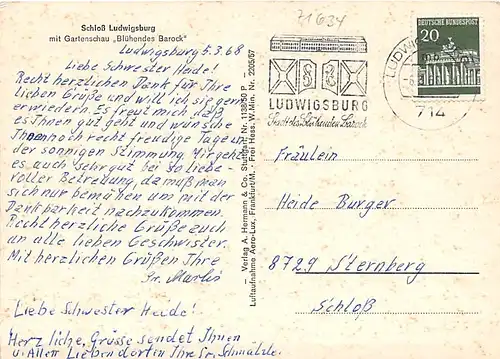 Schloß Ludwigsburg
mit Gartenschau „Blühendes Barock"
Ludwigsburg 5.3.68
Liebe Schwester Heide!
Recht herzlichen Dank für Ihre
lieben Grüße und will ich sie gern
erwiedern. Es freut mich daß
es Ihnen gut geht und wünsche
Ihnen noch recht freudige Tage in
der sonnigen Stimmung. Mir geht
es auch sehr gut bei so liebe-
voller Betreuung, da muß man
sich nur bemühen um mit der
Dankbarkeit nachzukommen.
Recht herzliche Grüße auch
an alle lieben Geschwister.
Mit herzlichen Grüßen Ihre
Liebe Schwester Heide!
Herzliche, Grüsse sendet Ihnen
u. Allen Lieben dort in Ihre Sr. Schmälzle.
— Verlag A. Hermann & Co. Stuttgart, Nr. 1138/50 P —
Luftaufnahme Aero-Lux, Frankfurt/M., Frei Hess. W.Min. Nr. 2205/67
71634
LUDWIGSBURG
Stadt des Blühenden Barock
714
DEUTSCHE BUNDESPOST
20
Fräulein
Heide Burger
8729 Sternberg
Schloß